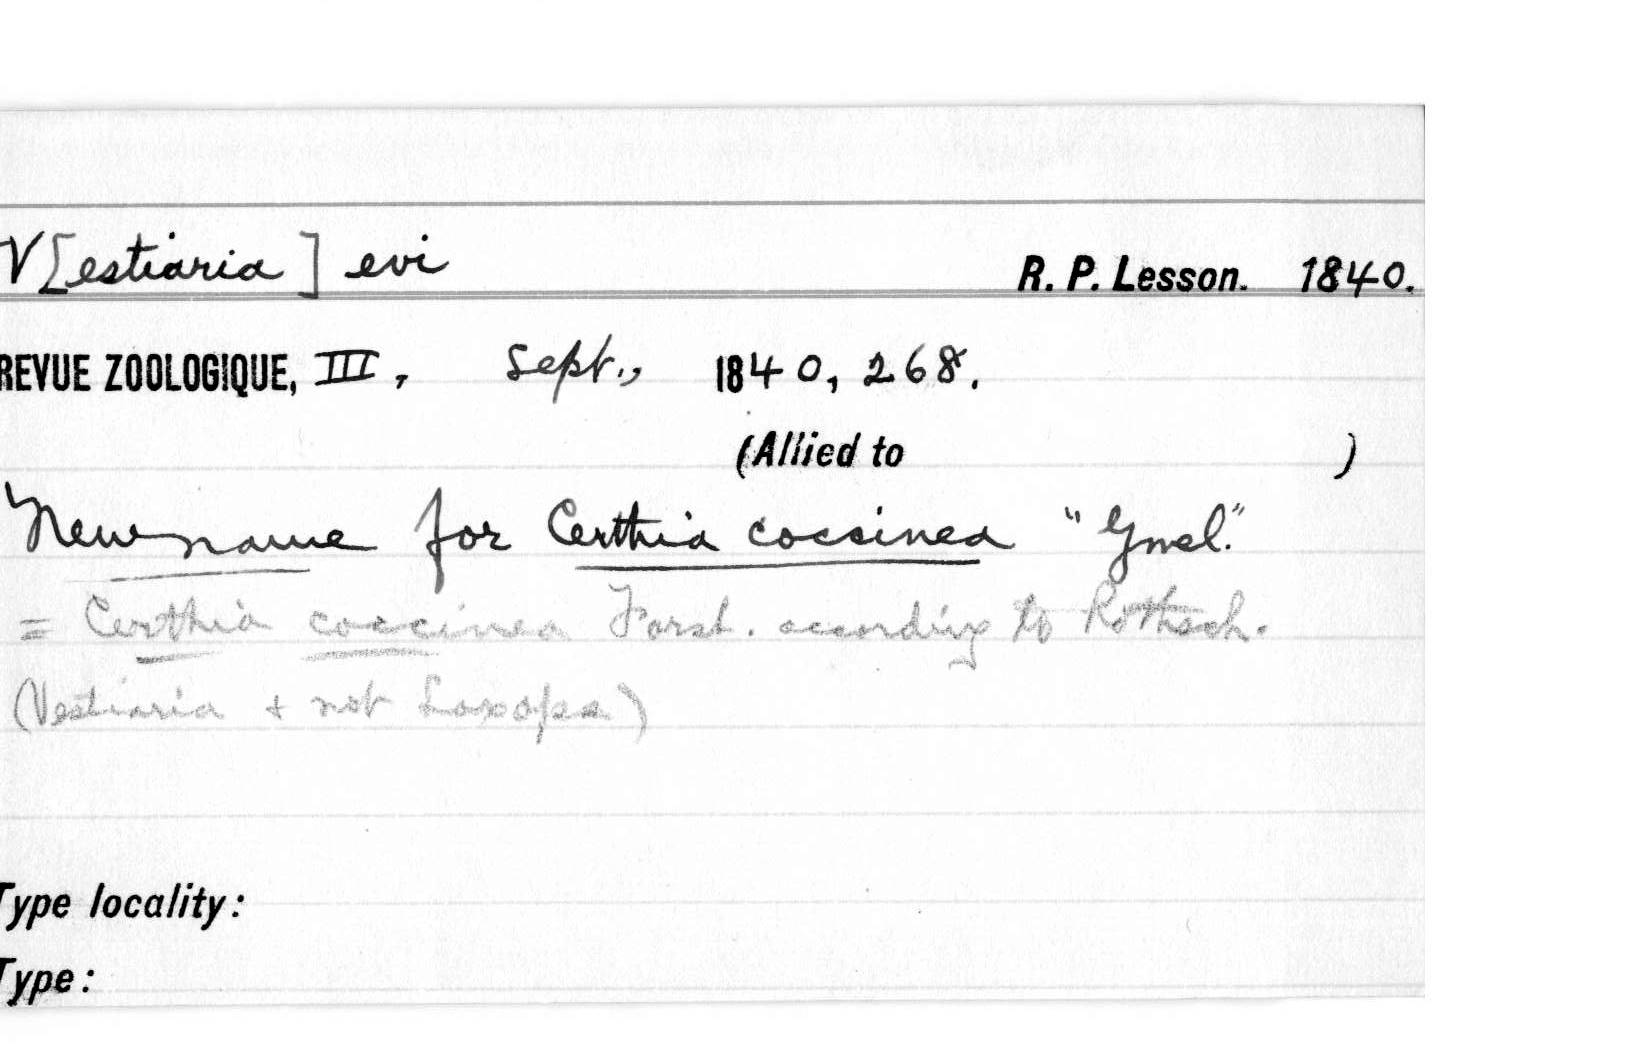 V[estiaria] evi R. P. Lesson. 1840.
REVUE ZOOLOGIQUE, III, Sept., 1840, 268.
(Allied to )
New name for Certhia coccinea "Gmel."
= Certhia coccinea Forst. according to Rothsch.
(Vestiaria + not Loxops)
Type locality:
Type: